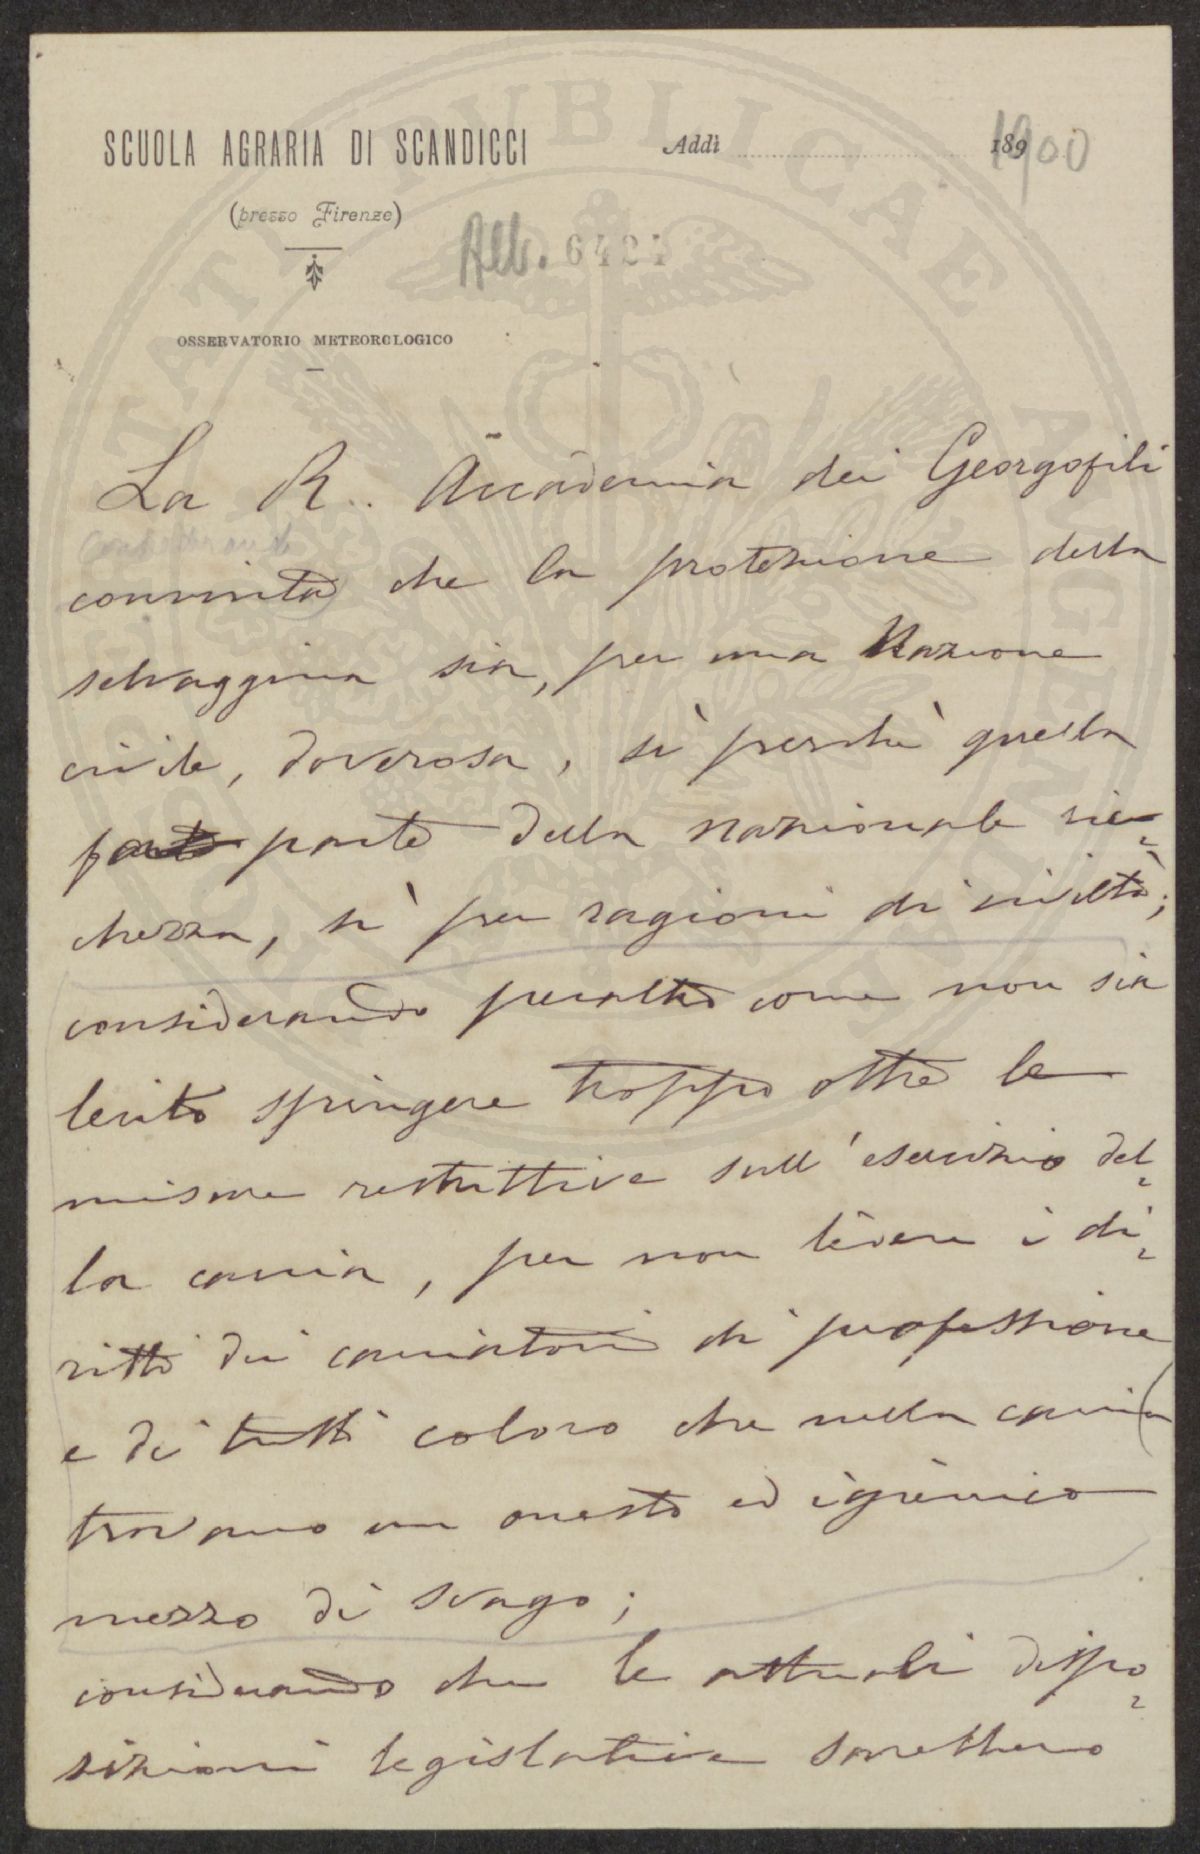 SCUOLA AGRARIA DI SCANDICCI
(presso Firenze)
OSSERVATORIO METEOROLOGICO
Addì 189
1900
All. 6424
La R. Accademia dei Georgofili
considerando
convinta che la protezione della
selvaggina sia, per una Nazione
civile, doverosa, sì perchè quella
parte parte della nazionale ric-
chezza, sì per ragioni di civiltà;
considerando peraltro come non sia
lecito spingere troppo oltre le
misure restrittive sull'esercizio del-
la caccia, per non ledere i di-
ritti dei cacciatori di professione
e di tutti coloro che nella caccia
trovano un onesto ed igienico
mezzo di svago;
considerando che le attuali dispo-
sizioni legislative sarebbero